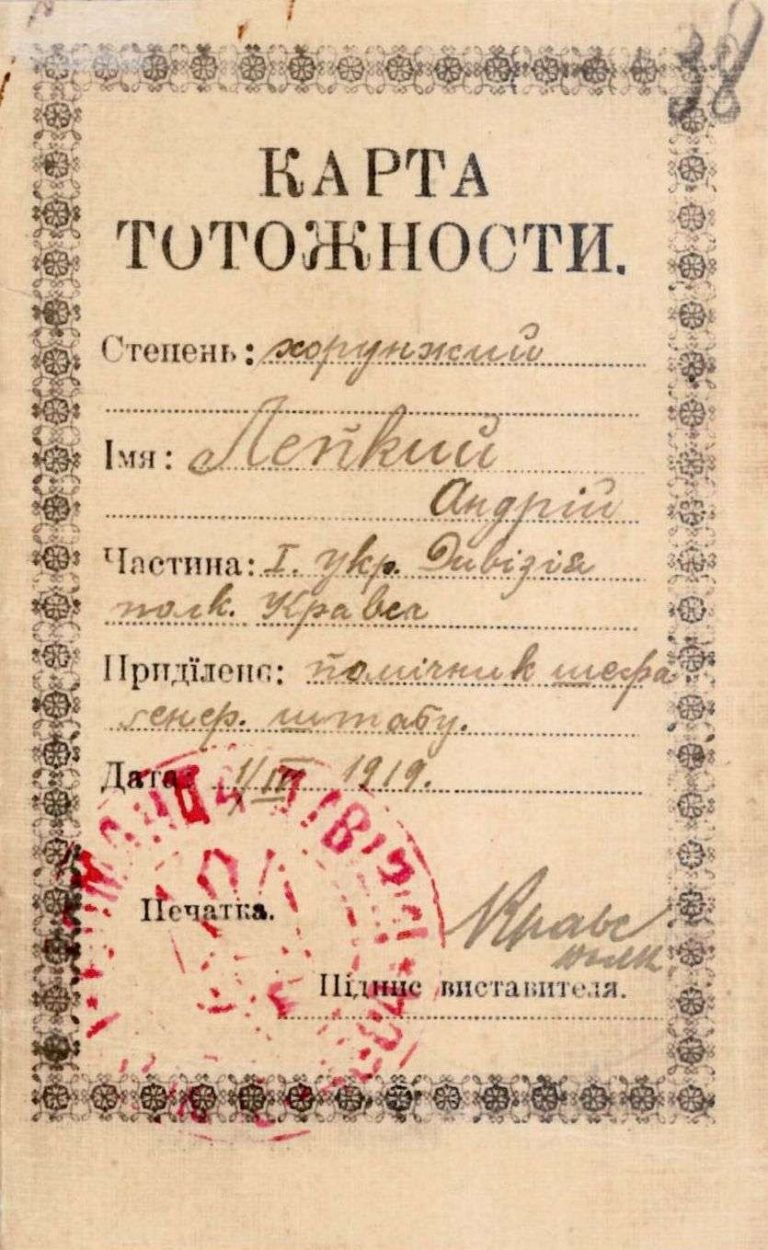 38
КАРТА
ТОТОЖНОСТИ.
Степень: хорунжий
Імя: Лепкий
Андрій
Частина: I. укр. Дивізія
полк. Кравса
Приділенє: помічник шефа
генер. штабу.
Дата: 1/III 1919.
Печатка.
Кравс
полк.
Підпис виставителя.